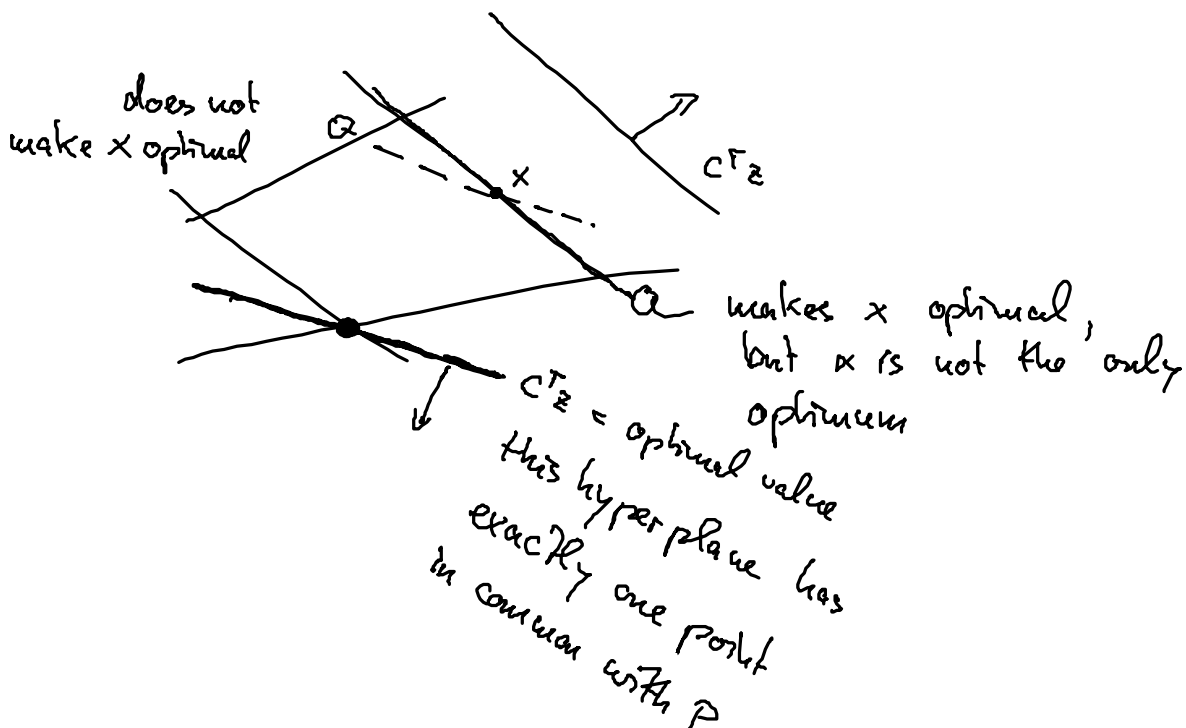 does not
make x optimal
x
cᵀz
makes x optimal,
but x is not the only
optimum
cᵀz = optimal value
this hyperplane has
exactly one point
in common with P